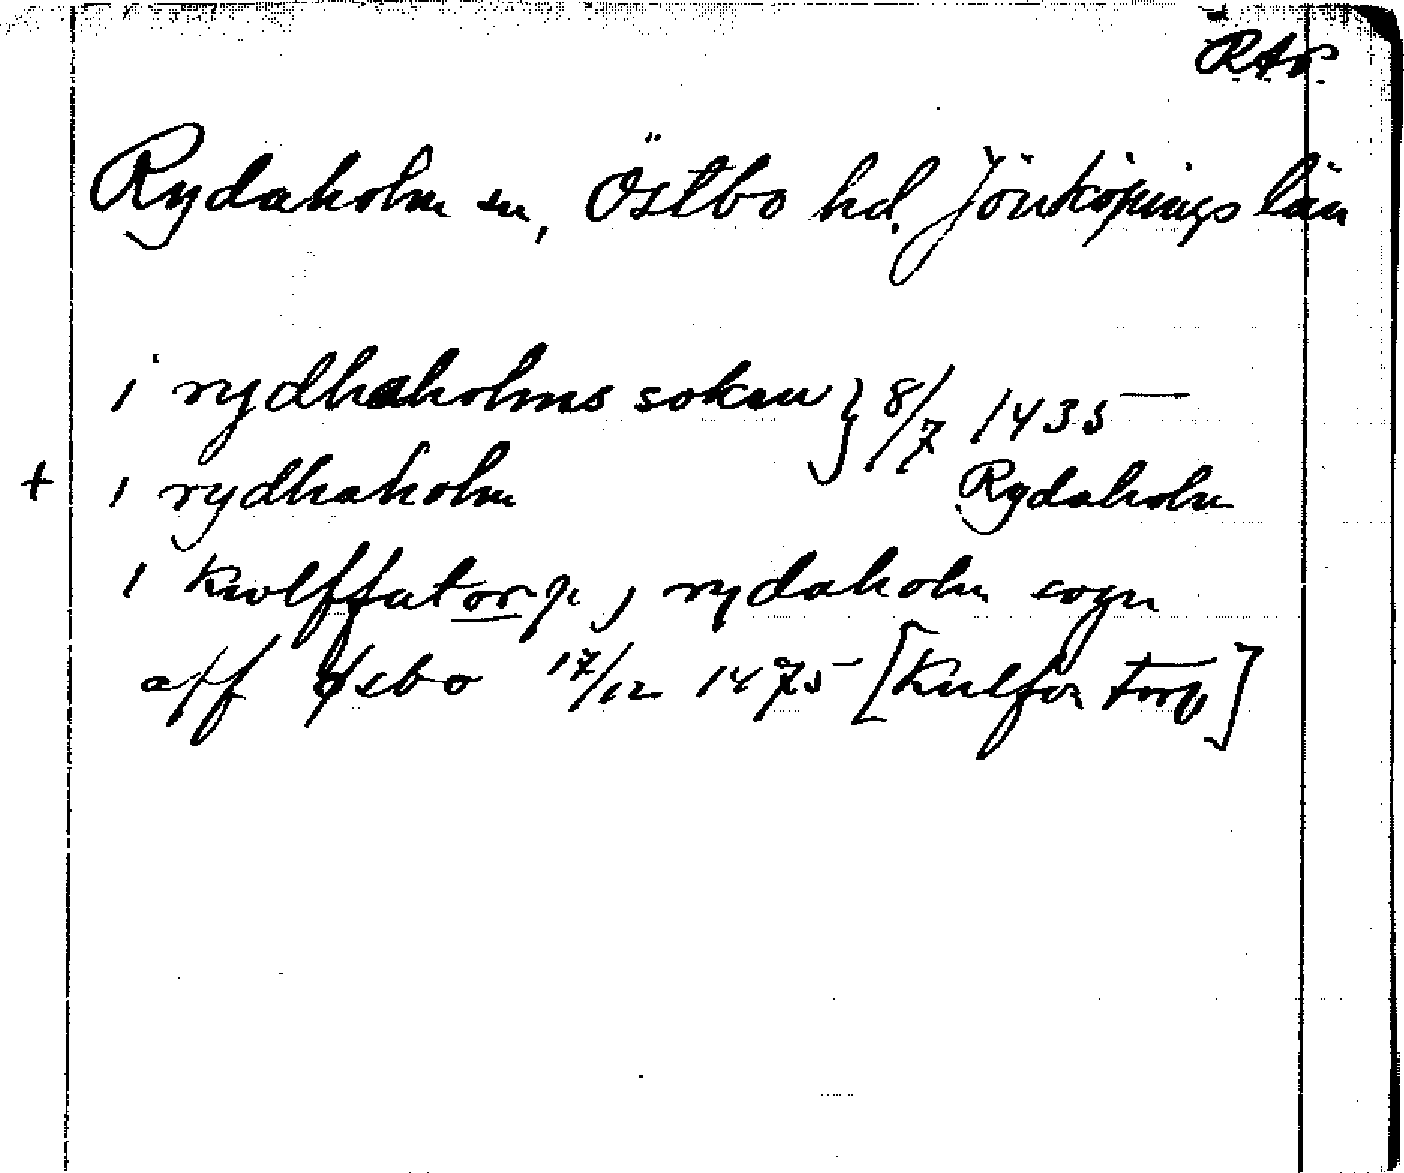 RAp.
Rydaholm sn, Östbo hd. Jönköpings län
i rydhaholms soken } 8/7 1435
+ i rydhaholm Rydaholm
i kwlffatorp j rydaholm sogn
aff øsbo 17/12 1475 [Kulfvatorp]